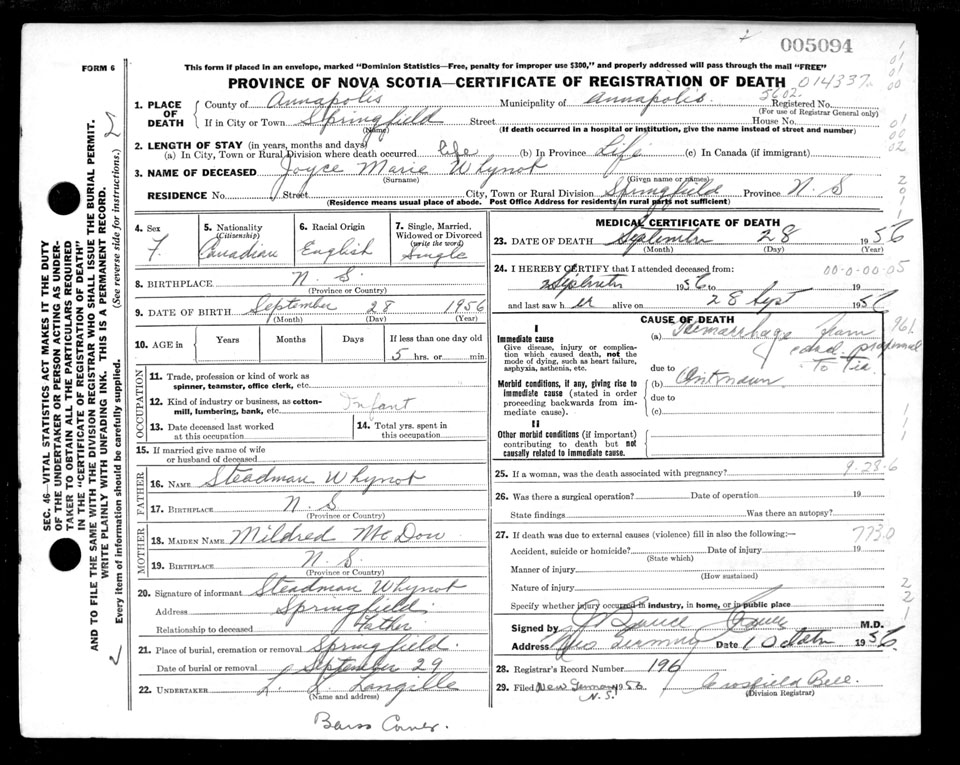 005094
FORM 6
This form if placed in an envelope, marked "Dominion Statistics—Free, penalty for improper use $300," and properly addressed will pass through the mail "FREE"
PROVINCE OF NOVA SCOTIA—CERTIFICATE OF REGISTRATION OF DEATH 014337
1. PLACE OF DEATH
County of Annapolis Municipality of Annapolis. 5602. Registered No.
(For use of Registrar General only)
If in City or Town Springfield Street House No.
(Name) (If death occurred in a hospital or institution, give the name instead of street and number)
2. LENGTH OF STAY (in years, months and days)
(a) In City, Town or Rural Division where death occurred life (b) In Province Life (c) In Canada (if immigrant)
3. NAME OF DECEASED Joyce Marie Whynot
(Surname) (Given name or names)
RESIDENCE No. Street City, Town or Rural Division Springfield Province N. S
(Residence means usual place of abode. Post Office Address for residents in rural parts not sufficient)
SEC. 46—VITAL STATISTICS ACT MAKES IT THE DUTY
OF THE UNDERTAKER OR PERSON ACTING AS UNDER-
TAKER TO OBTAIN ALL THE PARTICULARS REQUIRED
IN THE "CERTIFICATE OF REGISTRATION OF DEATH"
AND TO FILE THE SAME WITH THE DIVISION REGISTRAR WHO SHALL ISSUE THE BURIAL PERMIT.
WRITE PLAINLY WITH UNFADING INK. THIS IS A PERMANENT RECORD.
Every item of information should be carefully supplied. (See reverse side for instructions.)
4. Sex F.
5. Nationality (Citizenship) Canadian
6. Racial Origin English
7. Single, Married, Widowed or Divorced (write the word) Single
8. BIRTHPLACE N. S.
(Province or Country)
9. DATE OF BIRTH September 28 1956
(Month) (Day) (Year)
10. AGE in Years Months Days If less than one day old
5 hrs. or min.
OCCUPATION
11. Trade, profession or kind of work as
spinner, teamster, office clerk, etc.
12. Kind of industry or business, as cotton-
mill, lumbering, bank, etc. Infant
13. Date deceased last worked at this occupation
14. Total yrs. spent in this occupation
15. If married give name of wife
or husband of deceased
FATHER
16. NAME Steadman Whynot
17. BIRTHPLACE N. S
(Province or Country)
MOTHER
18. MAIDEN NAME Mildred Mc Dow
19. BIRTHPLACE N. S.
(Province or Country)
20. Signature of informant Steadman Whynot
Address Springfield
Relationship to deceased Father
21. Place of burial, cremation or removal Springfield
Date of burial or removal September 29
22. UNDERTAKER L. L. Langille
(Name and address)
Barss Corner.
MEDICAL CERTIFICATE OF DEATH
23. DATE OF DEATH September 28 1956
(Month) (Day) (Year)
24. I HEREBY CERTIFY that I attended deceased from:
00-0-00-05
1956 to 19
and last saw her alive on 28 Sept 1956
CAUSE OF DEATH
I
Immediate cause
Give disease, injury or complica-
tion which caused death, not the
mode of dying, such as heart failure,
asphyxia, asthenia, etc.
(a) Hemorrhage from 961
cord proximal
to tie
due to
Morbid conditions, if any, giving rise to
immediate cause (stated in order
proceeding backwards from im-
mediate cause).
(b) Unknown.
due to
(c)
II
Other morbid conditions (if important)
contributing to death but not
causally related to immediate cause.
25. If a woman, was the death associated with pregnancy? 9-28-6
26. Was there a surgical operation? Date of operation 19
State findings Was there an autopsy?
27. If death was due to external causes (violence) fill in also the following:— 773.0
Accident, suicide or homicide? Date of injury 19
(State which)
Manner of injury
(How sustained)
Nature of injury
Specify whether injury occurred in industry, in home, or in public place
Signed by M.D.
Address Date 1 1956
28. Registrar's Record Number 196
29. Filed New Germany 1956 Crosfield Bell.
N.S. (Division Registrar)